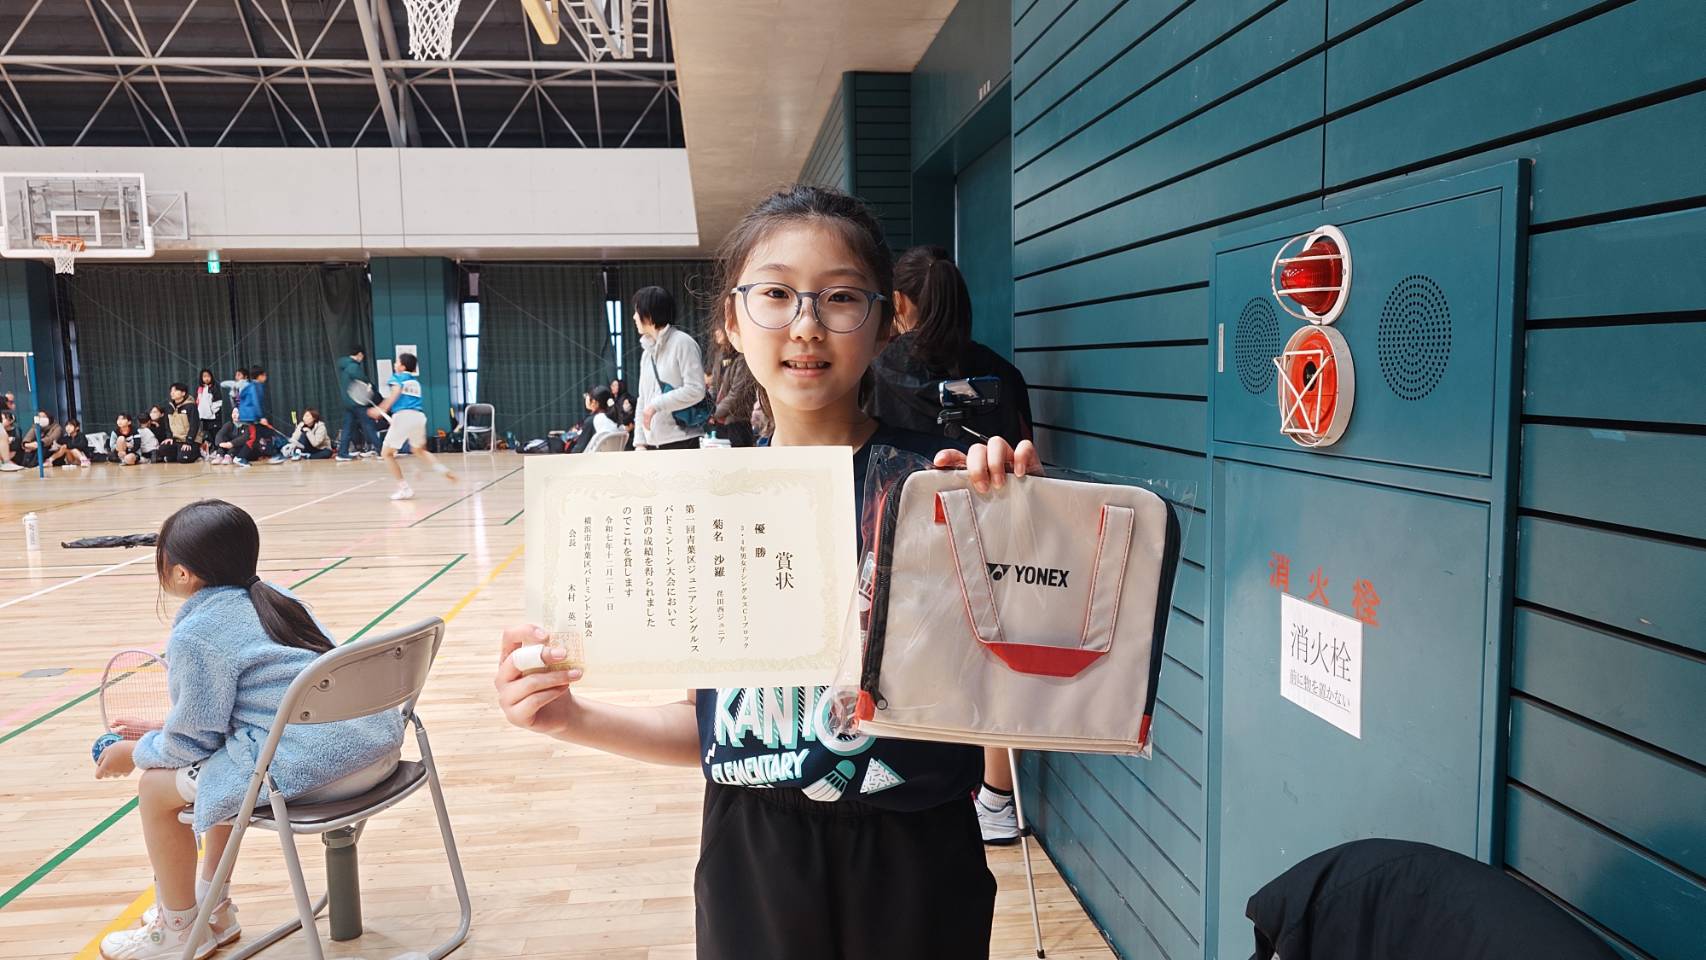 賞状
優勝
3・4年男女子シングルスC1ブロック
菊名 沙羅 荏田西ジュニア
第一回青葉区ジュニアシングルス
バドミントン大会において
頭書の成績を得られました
のでこれを賞します
令和七年十二月二十一日
横浜市青葉区バドミントン協会
会長 木村 英一
YONEX
ELEMENTARY
消火栓
消火栓
前に物を置かない